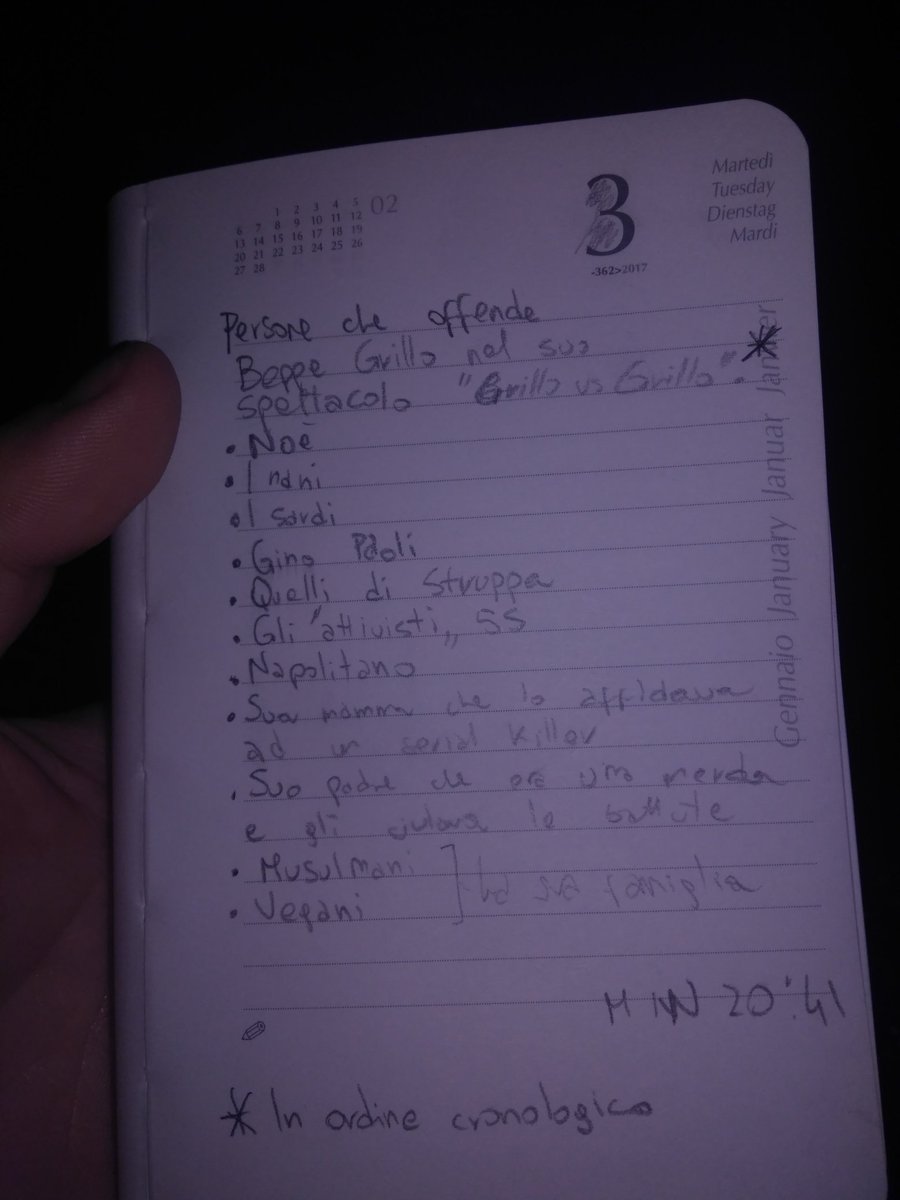 1 2 3 4 5 02
6 7 8 9 10 11 12
13 14 15 16 17 18 19
20 21 22 23 24 25 26
27 28
3
-362>2017
Martedì
Tuesday
Dienstag
Mardi
Gennaio January Januar Janvier
Persone che offende
Beppe Grillo nel suo
spettacolo "Grillo vs Grillo". *
• Noè
• I nani
• I sardi
• Gino Paoli
• Quelli di Struppa
• Gli "attivisti" 5S
• Napolitano
• Sua mamma che lo affidava
ad un serial killer
• Suo padre che era una merda
e gli ciulava le battute
• Musulmani
• Vegani
] La sua famiglia
MIN 20:41
* In ordine cronologico